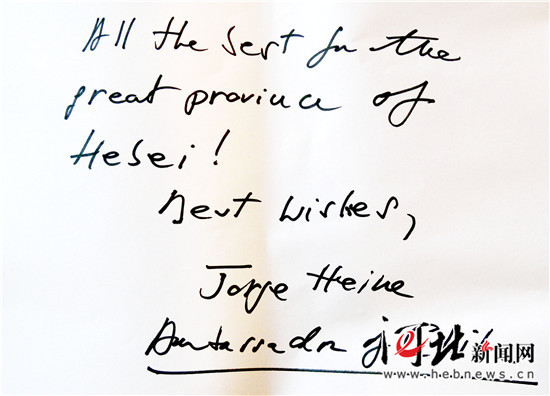 All the best for the
great province of
Hebei!
Best Wishes,
Jorge Heine
Ambassador of
河北新闻网
www.hebnews.cn